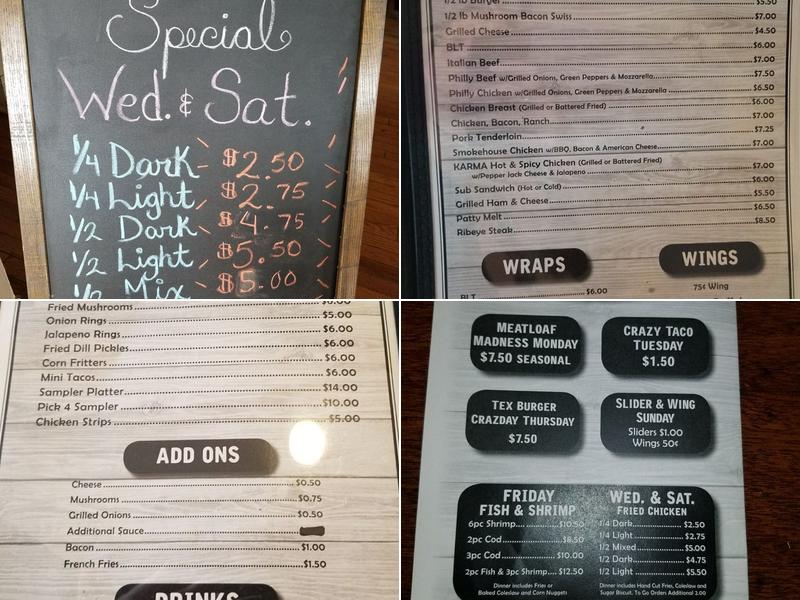 Special
Wed. & Sat.
1/4 Dark - $2.50
1/4 Light - $2.75
1/2 Dark - $4.75
1/2 Light - $5.50
1/2 Mix - $5.00
1/2 lb Burger $5.50
1/2 lb Mushroom Bacon Swiss $7.00
Grilled Cheese $4.50
BLT $6.00
Italian Beef $7.00
Philly Beef w/Grilled Onions, Green Peppers & Mozzarella $7.50
Philly Chicken w/Grilled Onions, Green Peppers & Mozzarella $6.50
Chicken Breast (Grilled or Battered Fried) $6.00
Chicken, Bacon, Ranch $7.00
Pork Tenderloin $7.25
Smokehouse Chicken w/BBQ, Bacon & American Cheese $7.00
KARMA Hot & Spicy Chicken (Grilled or Battered Fried)
w/Pepper Jack Cheese & Jalapeno $7.00
Sub Sandwich (Hot or Cold) $6.00
Grilled Ham & Cheese $5.50
Patty Melt $6.50
Ribeye Steak $8.50
WRAPS
BLT $6.00
WINGS
75¢ Wing
Fried Mushrooms $6.00
Onion Rings $5.00
Jalapeno Rings $6.00
Fried Dill Pickles $6.00
Corn Fritters $6.00
Mini Tacos $6.00
Sampler Platter $14.00
Pick 4 Sampler $10.00
Chicken Strips $5.00
ADD ONS
Cheese $0.50
Mushrooms $0.75
Grilled Onions $0.50
Additional Sauce
Bacon $1.00
French Fries $1.50
DRINKS
MEATLOAF
MADNESS MONDAY
$7.50 SEASONAL
CRAZY TACO
TUESDAY
$1.50
TEX BURGER
CRAZDAY THURSDAY
$7.50
SLIDER & WING
SUNDAY
Sliders $1.00
Wings 50¢
FRIDAY
FISH & SHRIMP
6pc Shrimp $10.50
2pc Cod $8.50
3pc Cod $10.00
2pc Fish & 3pc Shrimp $12.50
Dinner includes Fries or
Baked Coleslaw and Corn Nuggets
WED. & SAT.
FRIED CHICKEN
1/4 Dark $2.50
1/4 Light $2.75
1/2 Mixed $5.00
1/2 Dark $4.75
1/2 Light $5.50
Dinner includes Hand Cut Fries, Coleslaw and
Sugar Biscuit. To Go Orders Additional 2.00